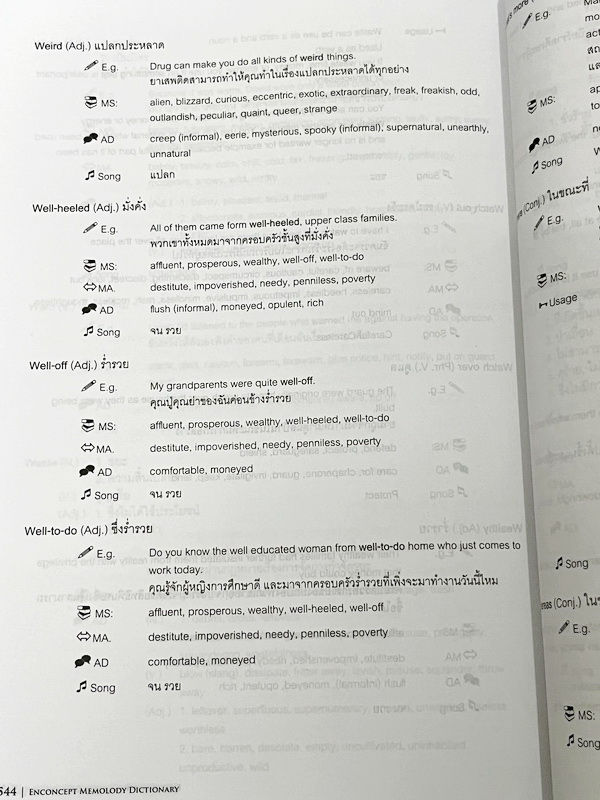 Weird (Adj.) แปลกประหลาด
E.g. Drug can make you do all kinds of weird things.
ยาเสพติดสามารถทำให้คุณทำในเรื่องแปลกประหลาดได้ทุกอย่าง
MS: alien, blizzard, curious, eccentric, exotic, extraordinary, freak, freakish, odd,
outlandish, peculiar, quaint, queer, strange
AD creep (informal), eerie, mysterious, spooky (informal), supernatural, unearthly,
unnatural
Song แปลก
Well-heeled (Adj.) มั่งคั่ง
E.g. All of them came form well-heeled, upper class families.
พวกเขาทั้งหมดมาจากครอบครัวชั้นสูงที่มั่งคั่ง
MS: affluent, prosperous, wealthy, well-off, well-to-do
MA. destitute, impoverished, needy, penniless, poverty
AD flush (informal), moneyed, opulent, rich
Song จน รวย
Well-off (Adj.) ร่ำรวย
E.g. My grandparents were quite well-off.
คุณปู่คุณย่าของฉันค่อนข้างร่ำรวย
MS: affluent, prosperous, wealthy, well-heeled, well-to-do
MA. destitute, impoverished, needy, penniless, poverty
AD comfortable, moneyed
Song จน รวย
Well-to-do (Adj.) ซึ่งร่ำรวย
E.g. Do you know the well educated woman from well-to-do home who just comes to
work today.
คุณรู้จักผู้หญิงการศึกษาดี และมาจากครอบครัวร่ำรวยที่เพิ่งจะมาทำงานวันนี้ไหม
MS: affluent, prosperous, wealthy, well-heeled, well-off
MA. destitute, impoverished, needy, penniless, poverty
AD comfortable, moneyed
Song จน รวย
544 | ENCONCEPT MEMOLODY DICTIONARY
E.g.
MS:
AD
Song
(Conj.) ในขณะที่
E.g.
MS:
Usage
Song
(Conj.)
E.g.
MS:
Song